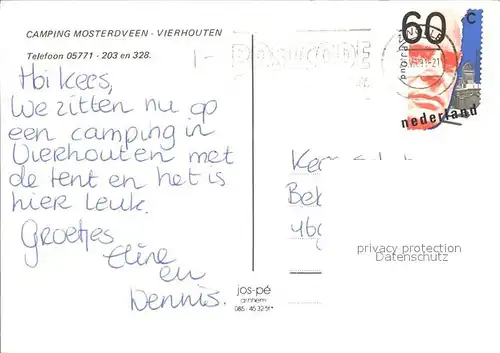 CAMPING MOSTERDVEEN - VIERHOUTEN
Telefoon 05771 - 203 en 328.
Hoi Kees,
We zitten nu op
een camping in
Vierhouten met
de tent en het is
hier leuk.
Groetjes
Eline
en
Dennis.
60 c
nederland
POSTCODE
Ke
Bek
460
privacy protection
Datenschutz
jos-pé
arnhem
085 - 45 32 51*